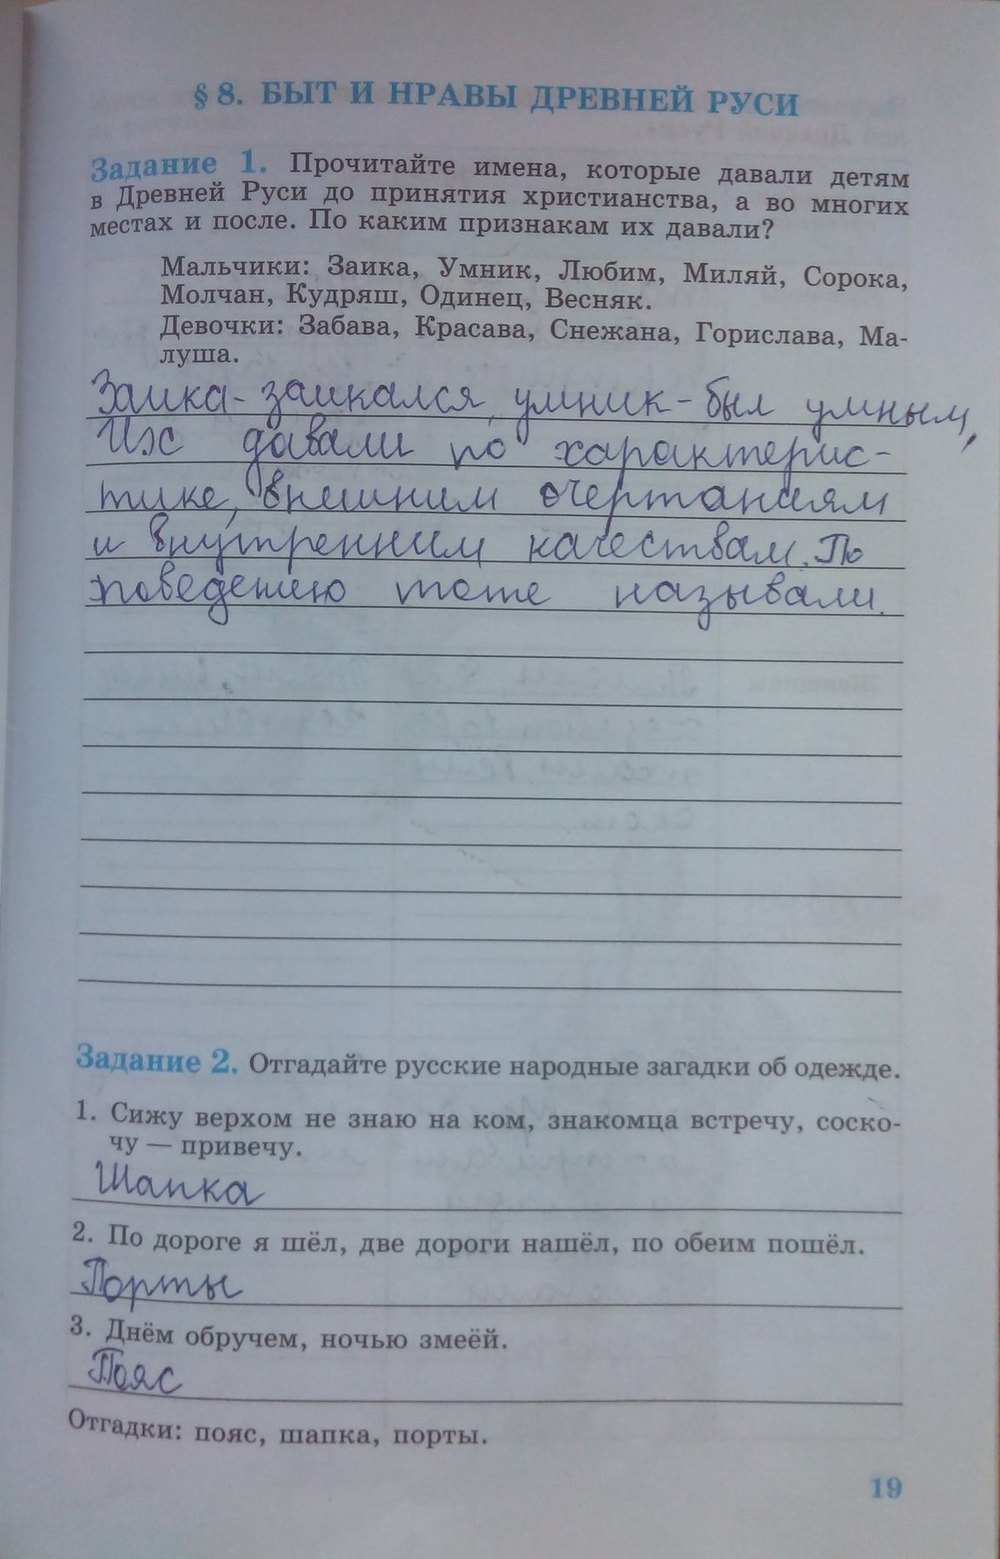 § 8. БЫТ И НРАВЫ ДРЕВНЕЙ РУСИ
Задание 1. Прочитайте имена, которые давали детям
в Древней Руси до принятия христианства, а во многих
местах и после. По каким признакам их давали?
Мальчики: Заика, Умник, Любим, Миляй, Сорока,
Молчан, Кудряш, Одинец, Весняк.
Девочки: Забава, Красава, Снежана, Горислава, Ма-
луша.
Заика - заикался, умник - был умным,
Их давали по характерис-
тике, внешним очертаниям
и внутренним качествам. По
поведению тоже называли.
Задание 2. Отгадайте русские народные загадки об одежде.
1. Сижу верхом не знаю на ком, знакомца встречу, соско-
чу — привечу.
Шапка
2. По дороге я шёл, две дороги нашёл, по обеим пошёл.
Порты
3. Днём обручем, ночью змеёй.
Пояс
Отгадки: пояс, шапка, порты.
19